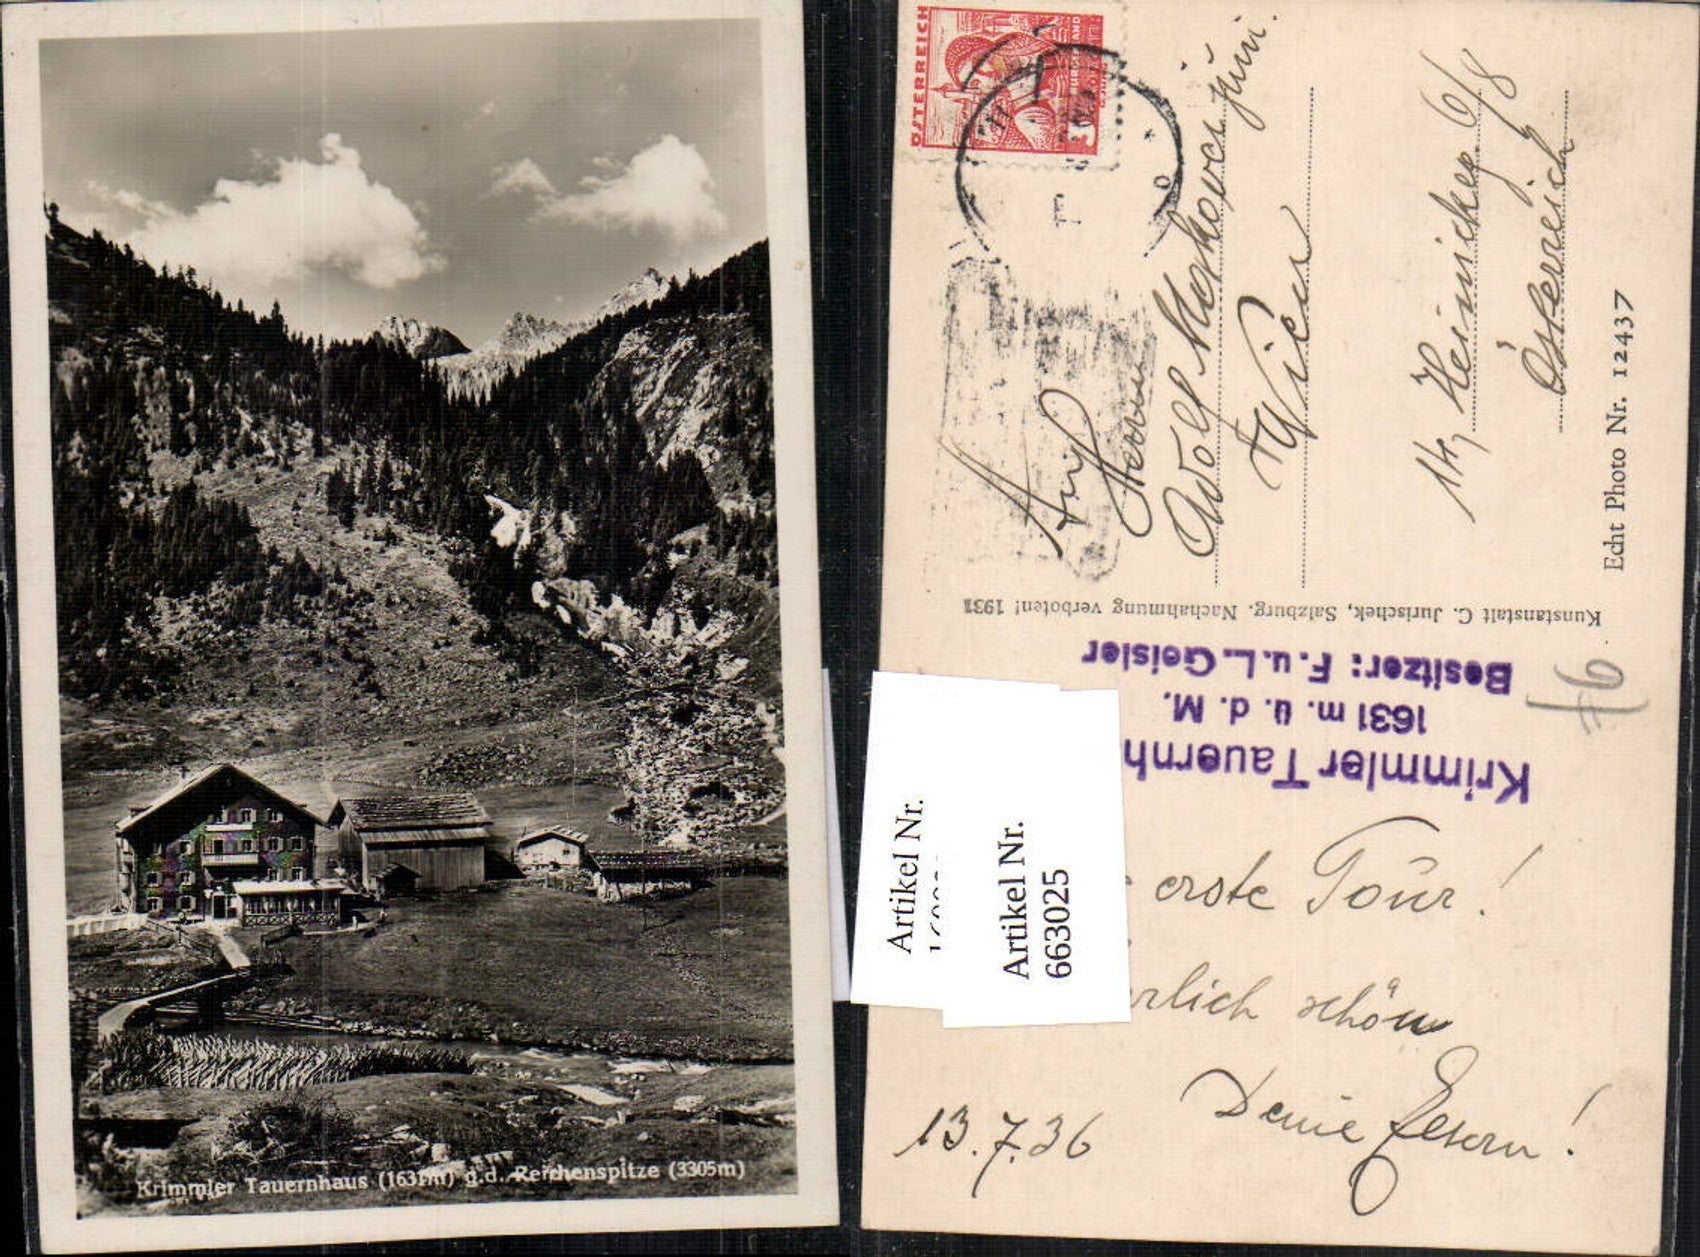 Krimmler Tauernhaus (1631m) g.d. Reichenspitze (3305m)
ÖSTERREICH
An
Herrn
Adolf
jun.
Wien
14, Heinickeg. 6/8
Österreich
Echt Photo Nr. 12437
Kunstanstalt C. Jurischek, Salzburg. Nachahmung verboten! 1931
Krimmler Tauernh
1631 m. ü. d. M.
Besitzer: F. u. L. Geisler
76
Artikel Nr.
Artikel Nr.
663025
erste Tour!
erlich schön
Deine
13.7.36